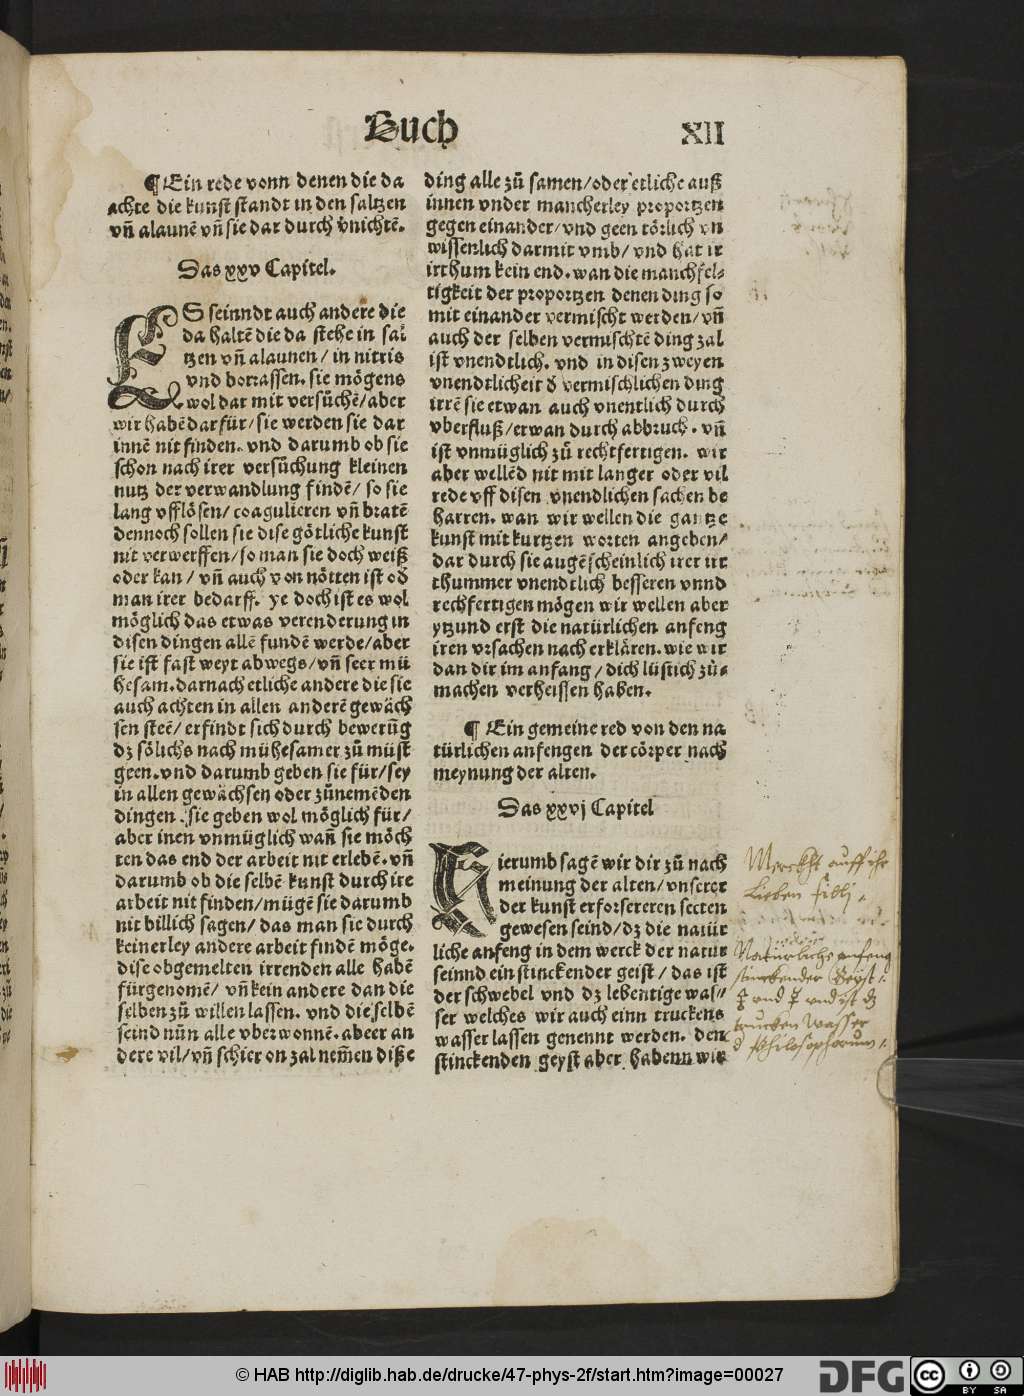 Buch
XII
¶ Ein rede vonn denen die da
achte die kunst standt in den saltzen
vñ alaunē vñ sie dar durch v̈nichtē.
Das xxv Capitel.
ES seinndt auch andere die
da haltē die da stehe in sal
tzen vñ alaunen / in nitris
vnd borrassen. sie mögens
wol dar mit versůchē/aber
wir habē dar für/sie werden sie dar
innē nit finden. vnd darumb ob sie
schon nach irer versůchung kleinen
nutz der verwandlung findē/ so sie
lang vfflösen/ coagulieren vñ bratē
dennoch sollen sie dise götliche kunst
nit verwerffen/so man sie doch weiß
oder kan / vñ auch von nötten ist ob
man irer bedarff. ye doch ist es wol
möglich das etwas verenderung in
disen dingen allē fundē werde/aber
sie ist fast weyt abwegs/vñ seer mü
hesam.darnach etliche andere die sie
auch achten in allen anderē gewäch
sen steē/ erfindt sich durch bewerũg
dz sölichs nach mühesamer zů müst
geen.vnd darumb geben sie für/sey
in allen gewächsen oder zůnemēden
dingen. sie geben wol möglich für/
aber inen vnmüglich wañ sie möch
ten das end der arbeit nit erlebē. vñ
darumb ob die selbē kunst durch ire
arbeit nit finden/mügē sie darumb
nit billich sagen/ das man sie durch
keinerley andere arbeit findē möge.
dise obgemelten irrenden alle habē
fürgenomē/ vñ kein andere dan die
selben zů willen lassen. vnd die selbē
seind nůn alle vberwonnē. abeer an
dere vil/vñ schier on zal nem̄en diße
ding alle zů samen/oder etliche auß
innen vnder mancherley proportzen
gegen einander/vnd geen törlich vn
wissenlich darmit vmb/ vnd hat ir
irthum kein end. wan die manchfel-
tigkeit der proportzen denen ding so
mit einander vermischt werden/ vñ
auch der selben vermischtē ding zal
ist vnendtlich. vnd in disen zweyen
vnendtlicheit d̈ vermischlichen ding
irrē sie etwan auch vnentlich durch
vberfluß/etwan durch abbruch. vñ
ist vnmüglich zů rechtfertigen. wir
aber wellēd nit mit langer oder vil
rede vff disen vnendlichen sachen be
harren. wan wir wellen die gantze
kunst mit kurtzen worten angeben/
dar durch sie augēscheinlich irer irr
thummer vnendtlich besseren vnnd
rechfertigen mögen wir wellen aber
ytzund erst die natürlichen anfeng
iren vrsachen nach erklären. wie wir
dan dir im anfang / dich lüstich zů-
machen verheissen haben.
¶ Ein gemeine red von den na
türlichen anfengen der cörper nach
meynung der alten.
Das xxvj Capitel
Hierumb sagē wir dir zů nach
meinung der alten/vnserer
der kunst erforsereren secten
gewesen seind/dz die natür
liche anfeng in dem werck der natur
seinnd ein stinckender geist / das ist
der schwebel vnd dz lebentige was-
ser welches wir auch einn truckens
wasser lassen genennt werden. den
stinckenden geyst aber habenn wir
Merckht auff ihr
Lieben filij.
Natürliche anfeng
stinckender Geist:
🜍 und ☿ und ist dz
trucken Wasser
d Philosophorum.
© HAB http://diglib.hab.de/drucke/47-phys-2f/start.htm?image=00027
DFG
cc
BY SA